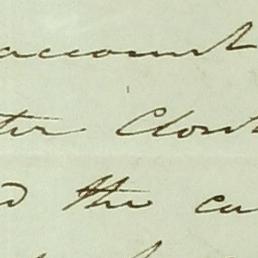 account
ter Clos
d the ca